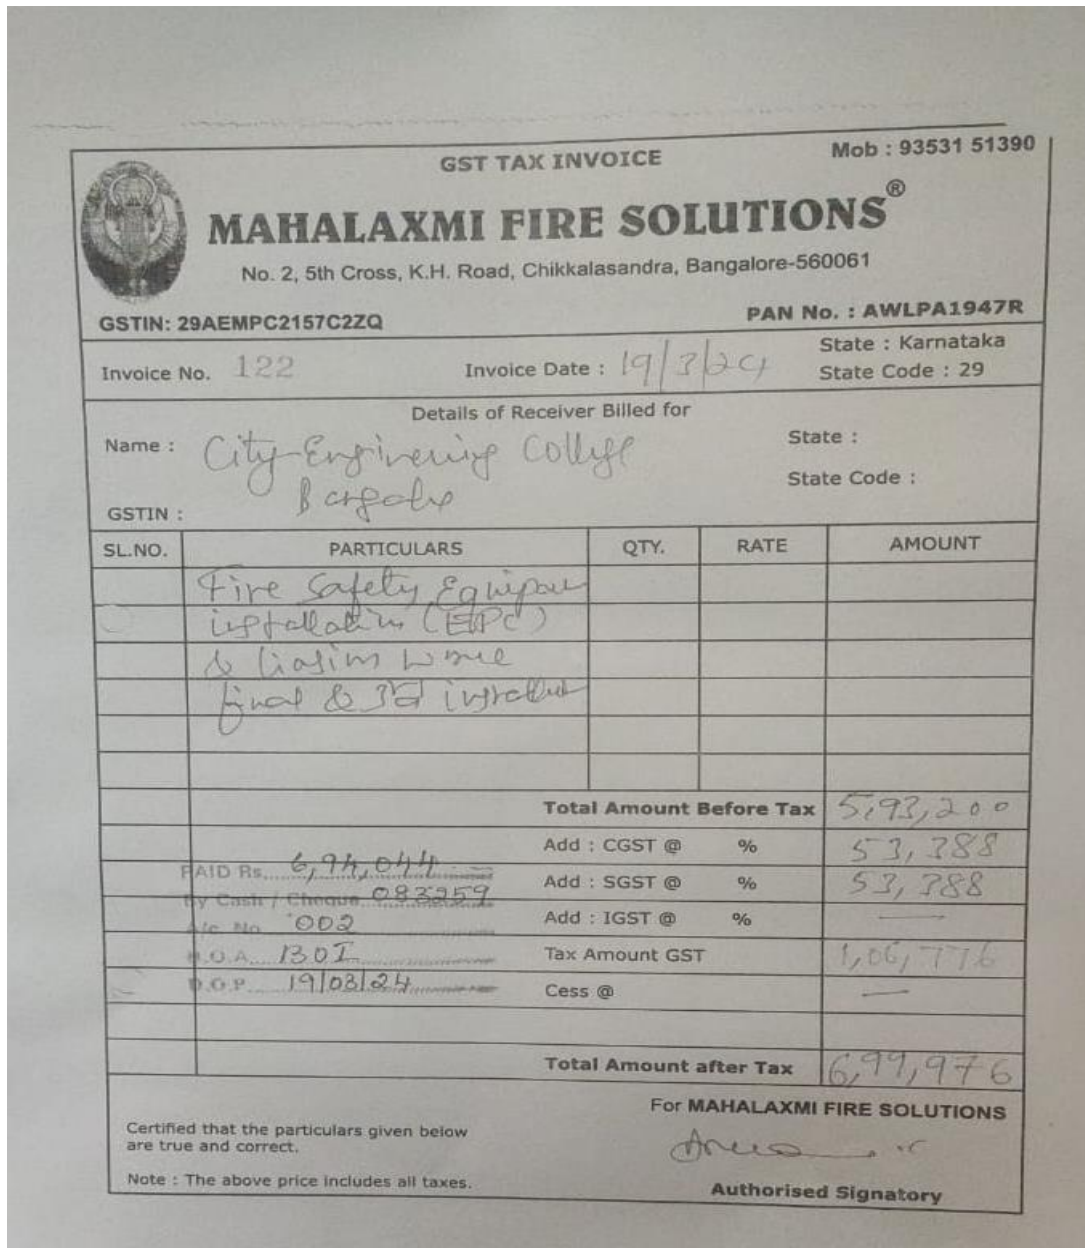 GST TAX INVOICE
Mob : 93531 51390
MAHALAXMI FIRE SOLUTIONS®
No. 2, 5th Cross, K.H. Road, Chikkalasandra, Bangalore-560061
GSTIN: 29AEMPC2157C2ZQ
PAN No. : AWLPA1947R
Invoice No. 122
Invoice Date : 19/3/24
State : Karnataka
State Code : 29
Details of Receiver Billed for
Name : City Engineering College
State :
State Code :
GSTIN :
SL.NO. PARTICULARS QTY. RATE AMOUNT
Fire Safety
installation (EPC)
&
final & 3rd
Total Amount Before Tax 5,93,200
Add : CGST @ % 53,388
PAID Rs. 6,94,044
Add : SGST @ % 53,388
By Cash / Cheque 083259
Add : IGST @ % —
A/c No. 002
Tax Amount GST 1,06,776
B.O.A. BOI
D.O.P. 19/03/24
Cess @ —
Total Amount after Tax 6,99,976
For MAHALAXMI FIRE SOLUTIONS
Certified that the particulars given below
are true and correct.
Note : The above price includes all taxes.
Authorised Signatory